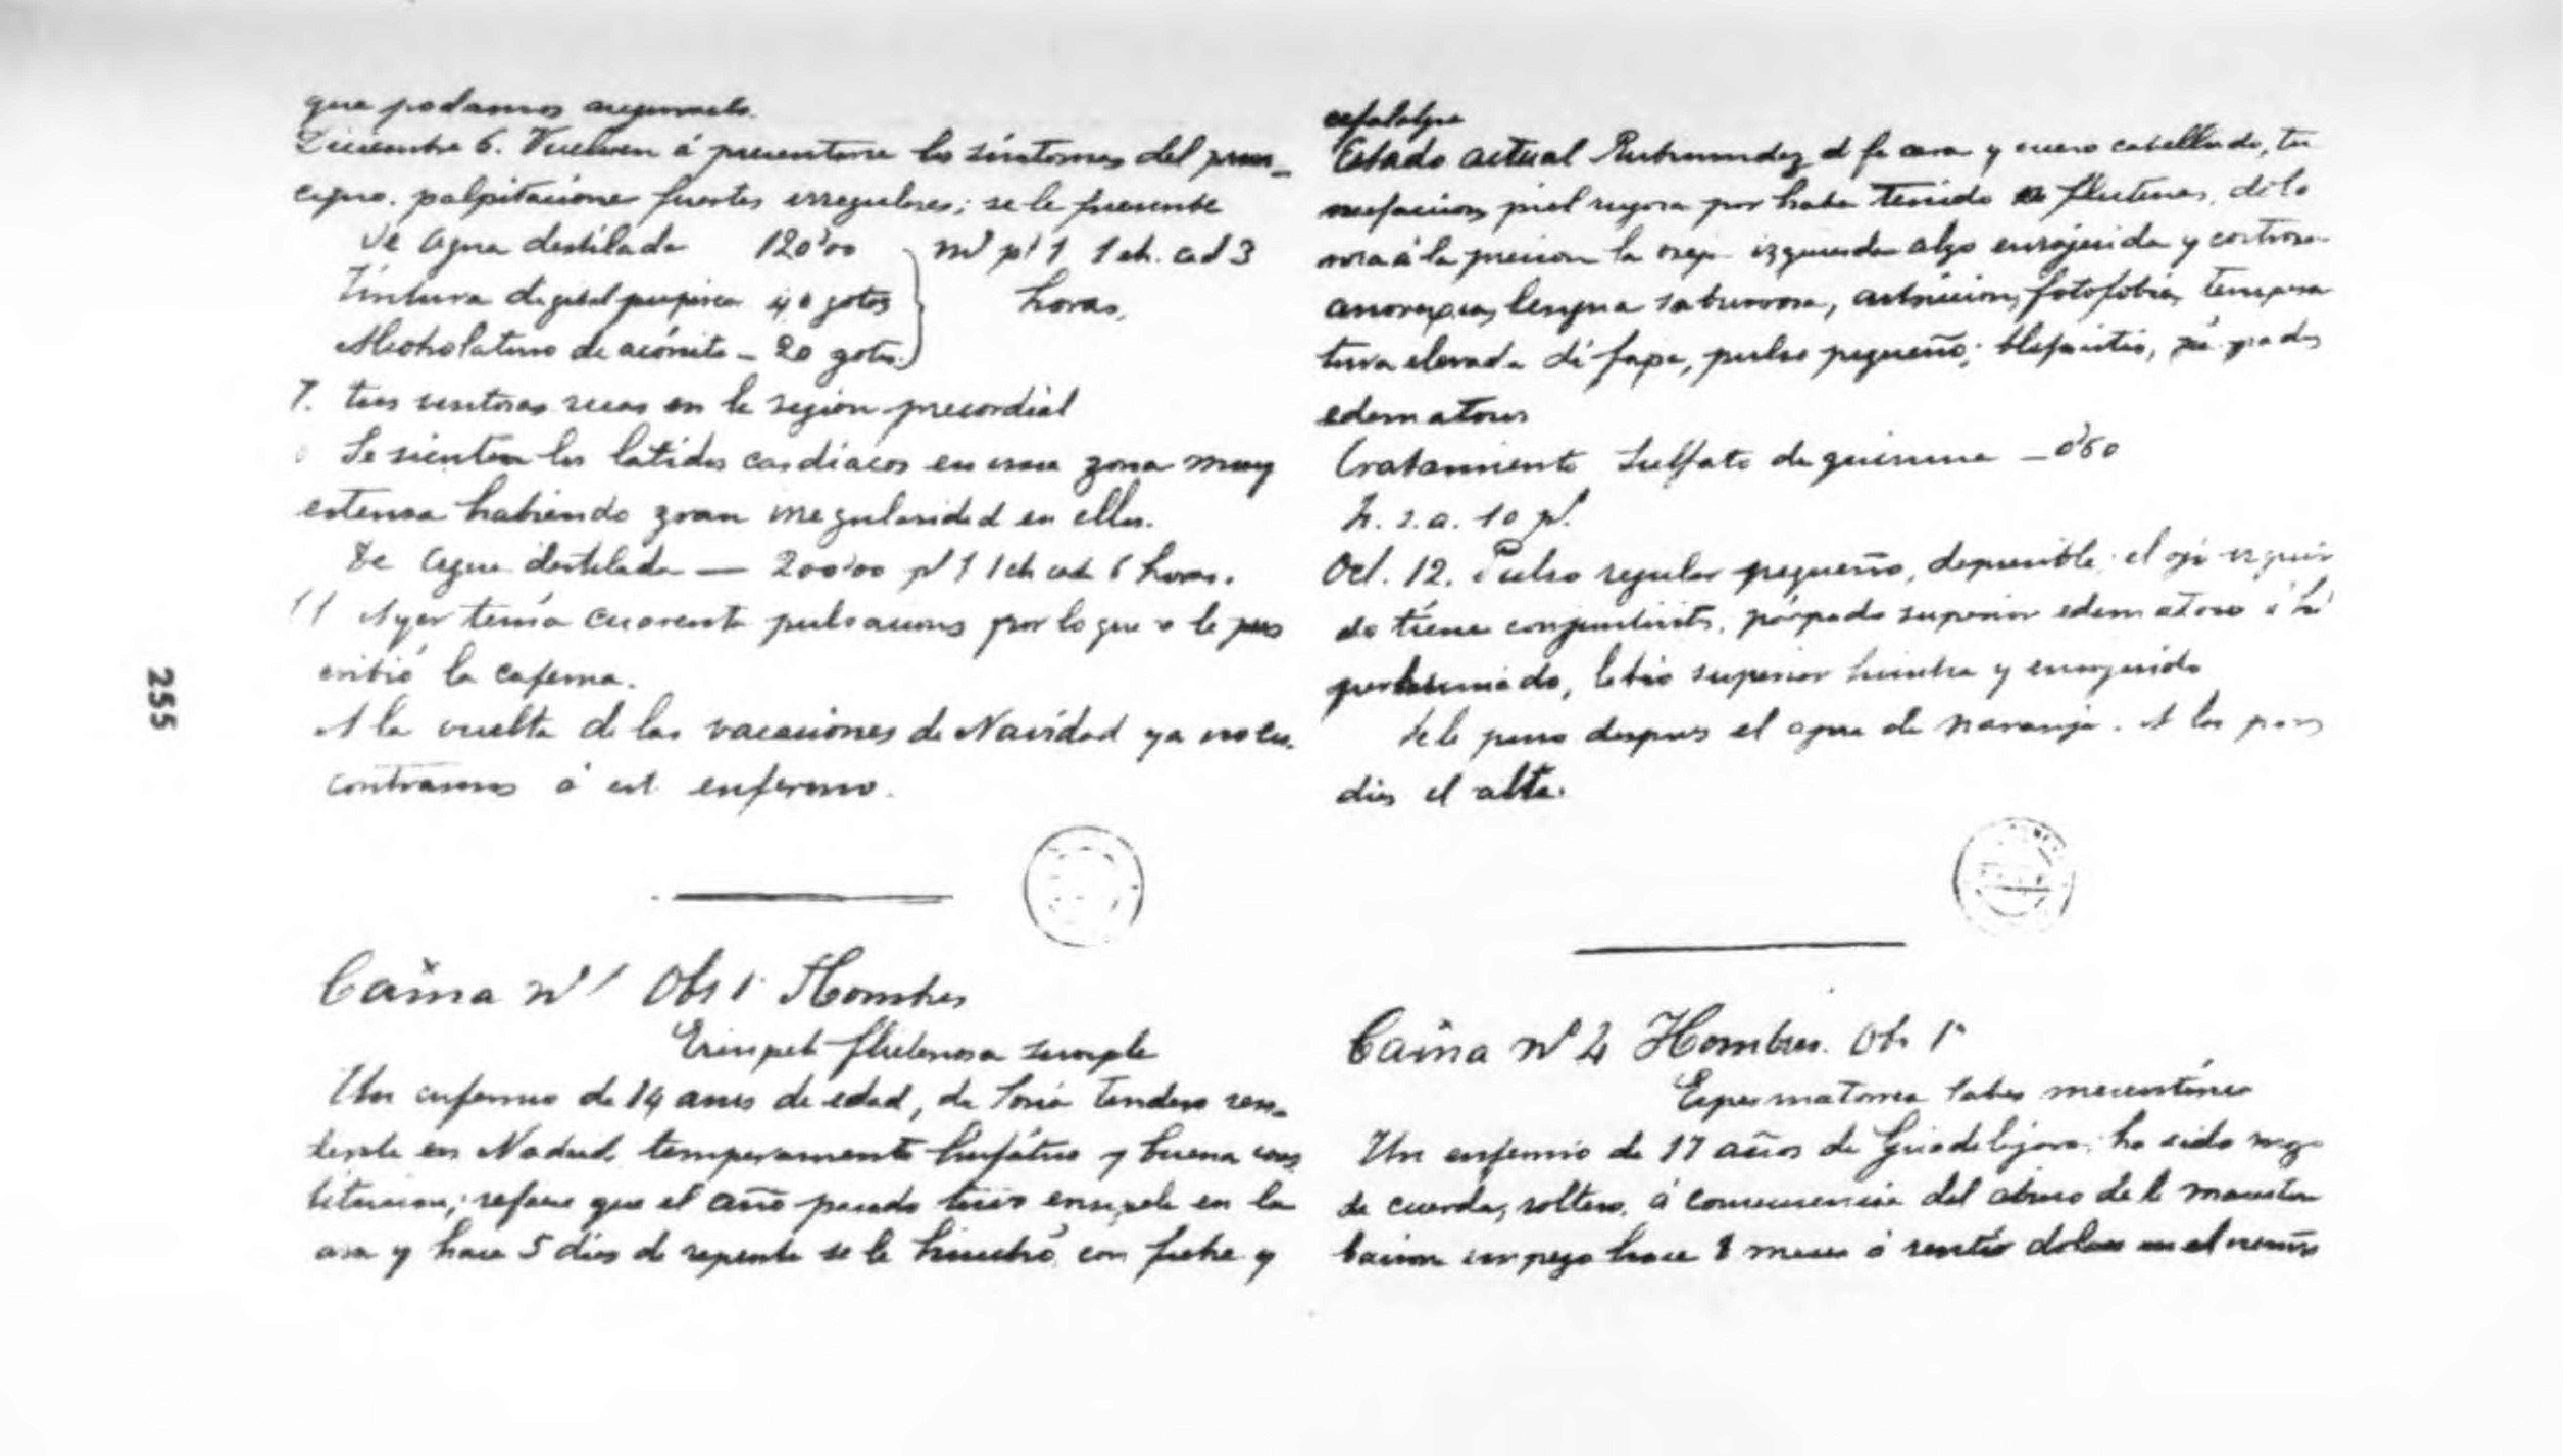 que podamos
Diciembre 6. Vuelven á presentarse los síntomas del prin-
cipio. palpitaciones fuertes irregulares; se le
De Agua destilada 120'00
Tintura digital purpúrea 40 gotas
Alcoholaturo de acónito — 20 gotas
m. pl 1 1 ch. cad 3
horas.
7. tres ventosas secas en la region precordial
Se sienten los latidos cardiacos en una zona muy
estensa habiendo gran irregularidad en ellos.
De Agua destilada — 200'00 pl 1 1 ch cad 6 horas.
11 Ayer tenía cuarenta pulsaciones por lo que se le pres
cribió la cafeina.
A la vuelta de las vacaciones de Navidad ya no en-
contramos á est enfermo.
Cama nº 1 Obs 1ª Hombres
Erisipela flictenosa simple
Un enfermo de 14 anos de edad, de Soria tendero resi-
dente en Madrid, temperamento linfático y buena cons
titucion; refiere que el año pasado tuvo erisipela en la
cara y hace 5 dias de repente se le hinchó con fiebre y
255
cefalalgia
Estado actual Rubicundez d la cara y cuero cabelludo, tu
mefaccion, piel rugosa por haber tenido flictenas, dolo
rosa á la presion la oreja izquierda algo enrojecida y costrosa
anorexia, lengua saburrosa, astriccion, fotofobia, tempera
tura elevada pulso pequeño; blefaritis, parpados
edematosos
Tratamiento Sulfato de quinina — 0'60
h. s. a. 10 pl.
Oct. 12. Pulso regular pequeño, depresible; el ojo izquier
do tiene conjuntivitis, párpado superior edematoso
labio superior hincha y enrojecido
Se le puso despues el agua de naranja. A los pocos
dias el alta.
Cama nº 4 Hombres. Ob. 1ª
Espermatorrea tabes mesentérica
Un enfermo de 17 años de Guadalajara; ha sido mozo
de cuerda, soltero, á consecuencia del abuso de la mastur
bacion empezo hace 8 meses á sentir dolores en el